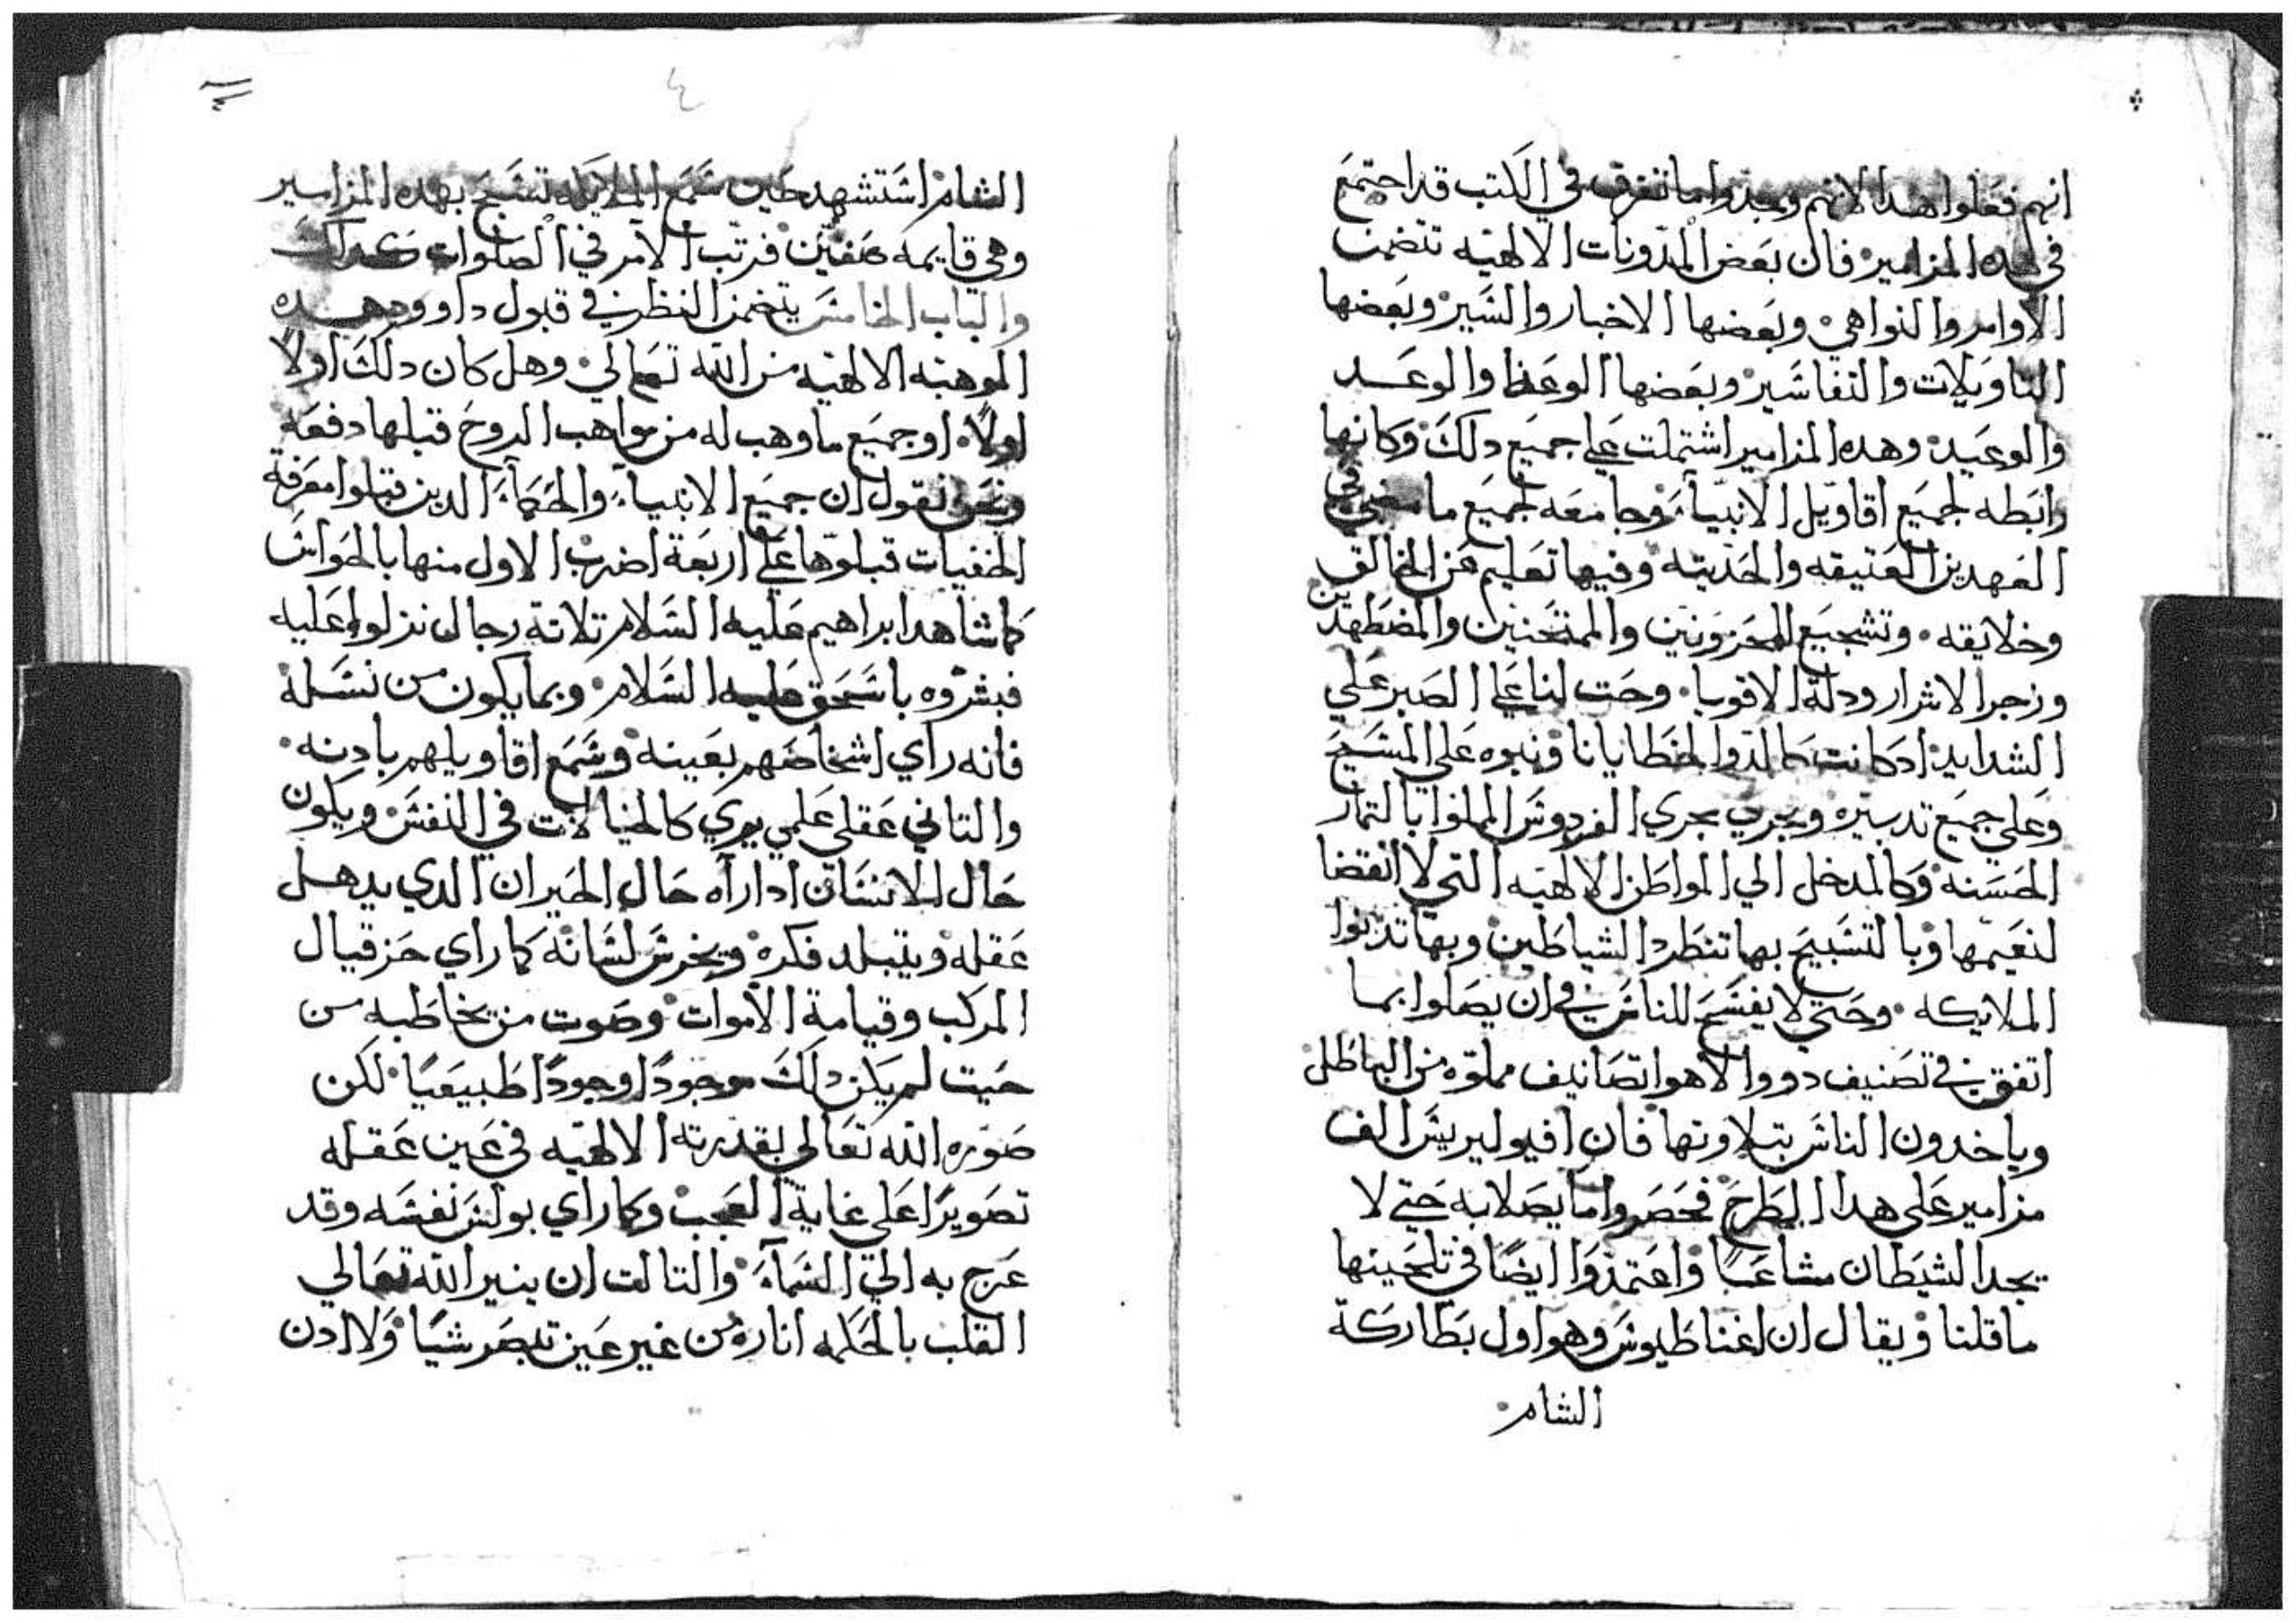 انهم فعلوا هدا لانهم وجدوا ما تفرق في الكتب قد اجتمع
في هده المزامير فان بعض المدونات الالهيه تتضمن
الاوامر والنواهي وبعضها الاخبار والسير وبعضها
التاويلات والتفاسير وبعضها الوعظ والوعد
والوعيد وهده المزامير اشتملت علي جميع دلك وكانها
رابطه لجميع اقاويل الانبيآء وجامعه لجميع ما في
العهدين العتيقه والحديته وفيها تعليم عن الخالق
وخلايقه وتشجيع للمحزونين والممتحنين والمضطهدين
وزجر الاشرار ودلة الاقويا وحت لنا علي الصبر علي
الشدايد ادكانت كالدوا لخطايانا ونبوه علي المسيح
وعلي جميع تدبيره ويجري مجري الفردوس المملوا بالتمار
الحسنه وكالمدخل الي المواطن الالهيه التي لا انقضا
لنعيمها وبالتسبيح بها تنطرد الشياطين وبها تدنوا
الملايكه وحتي لا يفسح للناس في ان يصلوا بما
اتفق في تصنيف دووا الاهوا تصانيف مملوه من الباطل
وياخدون الناس بتلاوتها فان افيوليريس الف
مزامير علي هدا الطرح فحصروا ما يصلا به حتي لا
يجد الشيطان مشاعبا واعتمدوا ايضا في تلحينها
ما قلنا ويقال ان اغناطيوس وهو اول بطاركة
الشام
٤
الشام استشهد حين سمع الملايكه تسبح بهده المزامير
وهي قايمه صفين فرتب الامر في الصلوات كداك
والباب الخامس يتضمن النظر في قبول داوود هده
الموهبه الالهيه من الله تعالي وهل كان دلك اولاً
اولاً او جميع ما وهب له من مواهب الروح قبلها دفعه
ونحن نقول ان جميع الانبيآء والحكمآء الدين قبلوا معرفة
الخفيات قبلوها علي اربعة اضرب الاول منها بالحواس
كما شاهد ابراهيم عليه السلام تلاتة رجال نزلوا عليه
فبشروه باسحق عليه السلام وبما يكون من نسله
فانه راي اشخاصهم بعينه وسمع اقاويلهم بادنه
والتاني عقلي علمي يري كالخيالات في النفس ويكون
حال الانسان ادا رآه حال الحيران الدي يدهل
عقله ويتبلد فكره ويخرس لسانه كما راي حزقيال
المركب وقيامة الاموات وصوت من يخاطبه من
حيت لم يكن دلك موجودًا وجودًا طبيعيًا لكن
صوره الله تعالي بقدرته الالهيه في عين عقله
تصويرًا علي غاية العجب وكما راي بولس نفسه وقد
عرج به الي السمآء والتالت ان ينير الله تعالي
القلب بالحكمه اناره من غير عين تبصر شيًا ولا ادن